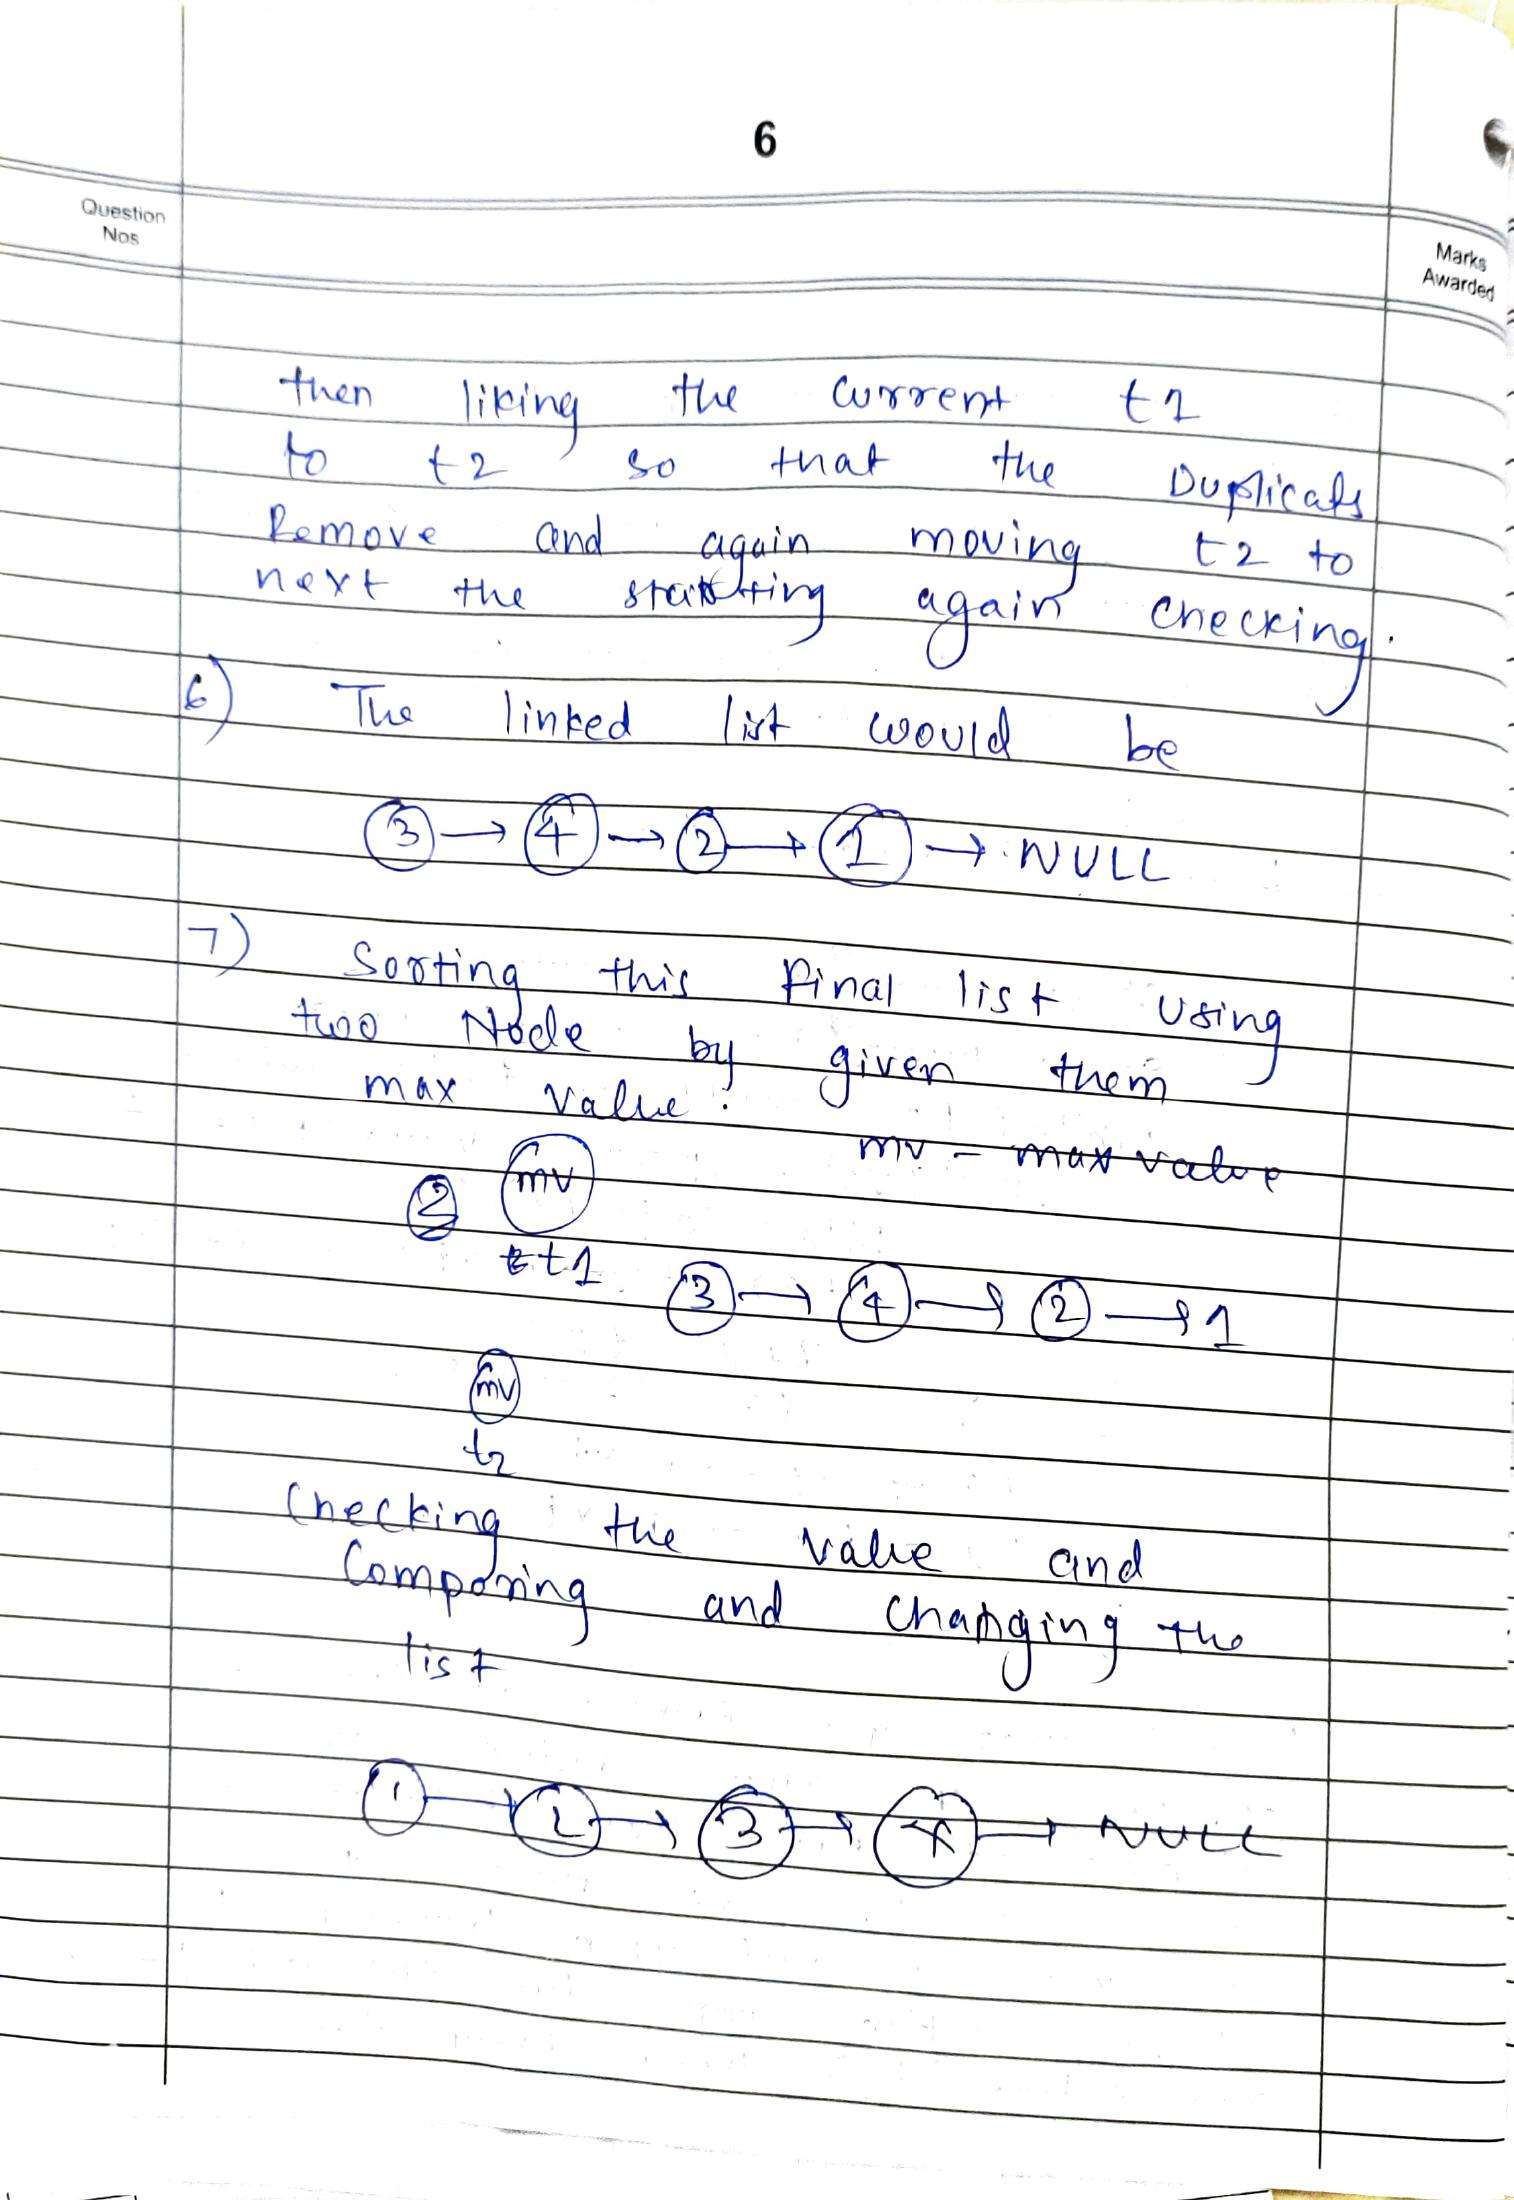 6
Question
Nos
Marks
Awarded
then liking the current t1
to t2 so that the Duplicats
Remove and again moving t2 to
next the starting again checking.
6) The linked list would be
3 → 4 → 2 → 1 → NULL
7) Sorting this final list using
two Node by given them
max value.
mv - max value
2 mv
t1
3 → 4 → 2 → 1
mv
t2
Checking the value and
Comparing and changing the
list
1 → 2 → 3 → 4 → NULL